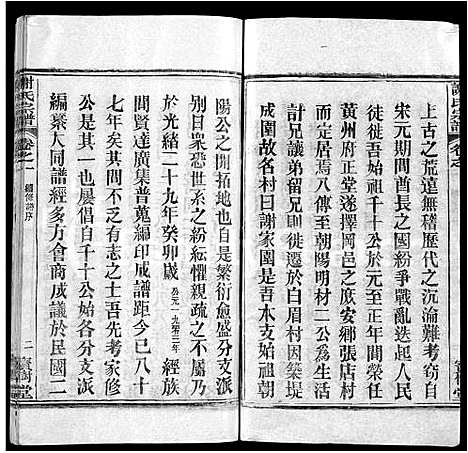 上古之荒遠無稽歷代之沉淪難考竊自
宋元期間吾大漢之國紛爭戰亂迭起人民
不堪其苦始祖千十公於元至正年間榮任
黃州府正堂遂擇岡邑之庶安鄉張店村
定居焉八傳至朝陽明材二公為生活
計兄讓弟留兄則徙遷於白眉村因築堤
成圍故名村曰謝家園是吾本支始祖朝
陽公之開拓地也自是繁衍愈盛分支派
別日眾恐世系之紛紜懼親疏之不屬乃
於光緒二十九年癸卯歲公元一九零三年經族
間賢達廣集普蒐編印成譜距今已八十
七年矣基於有志之士吾先考家修
公是其一也屢倡自千十公始各分支派
編纂大同譜經多方會商成議於民國二
謝氏宗譜
卷之一
續修譜序
二
寶樹堂